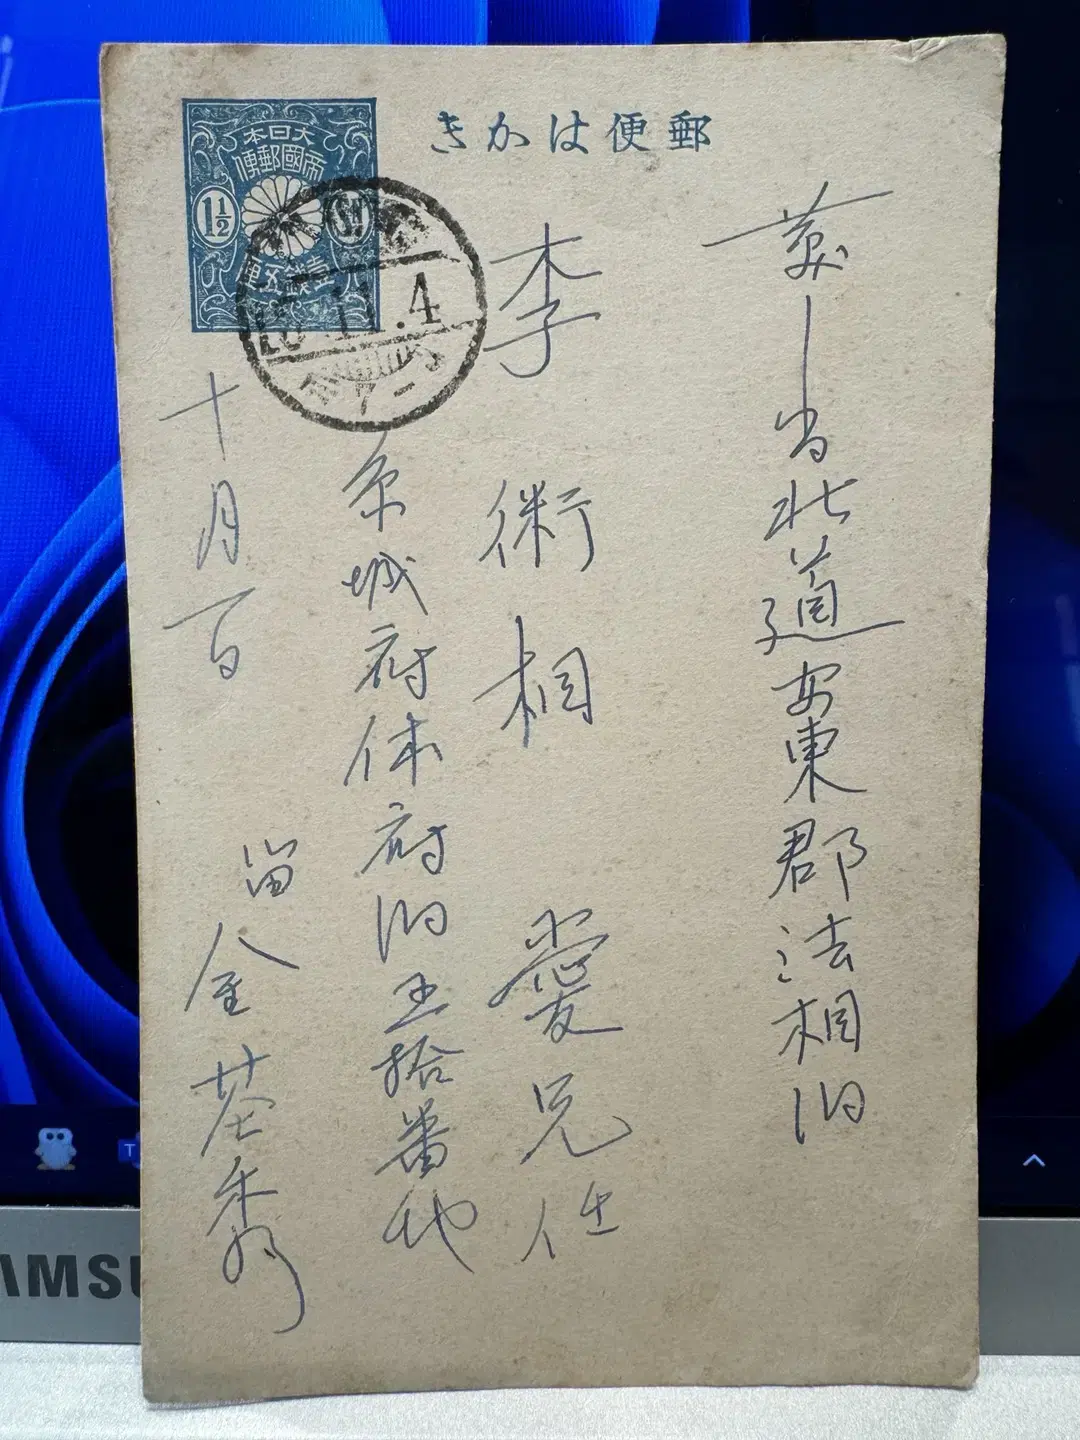 郵便はかき
大日本
帝國郵便
1½
Sn
壹錢五厘
11.4
慶尙北道安東郡法相洞
李術相 愛兄 任
京城府体府洞五拾番地
十月 留 金基秀
AMSU
T